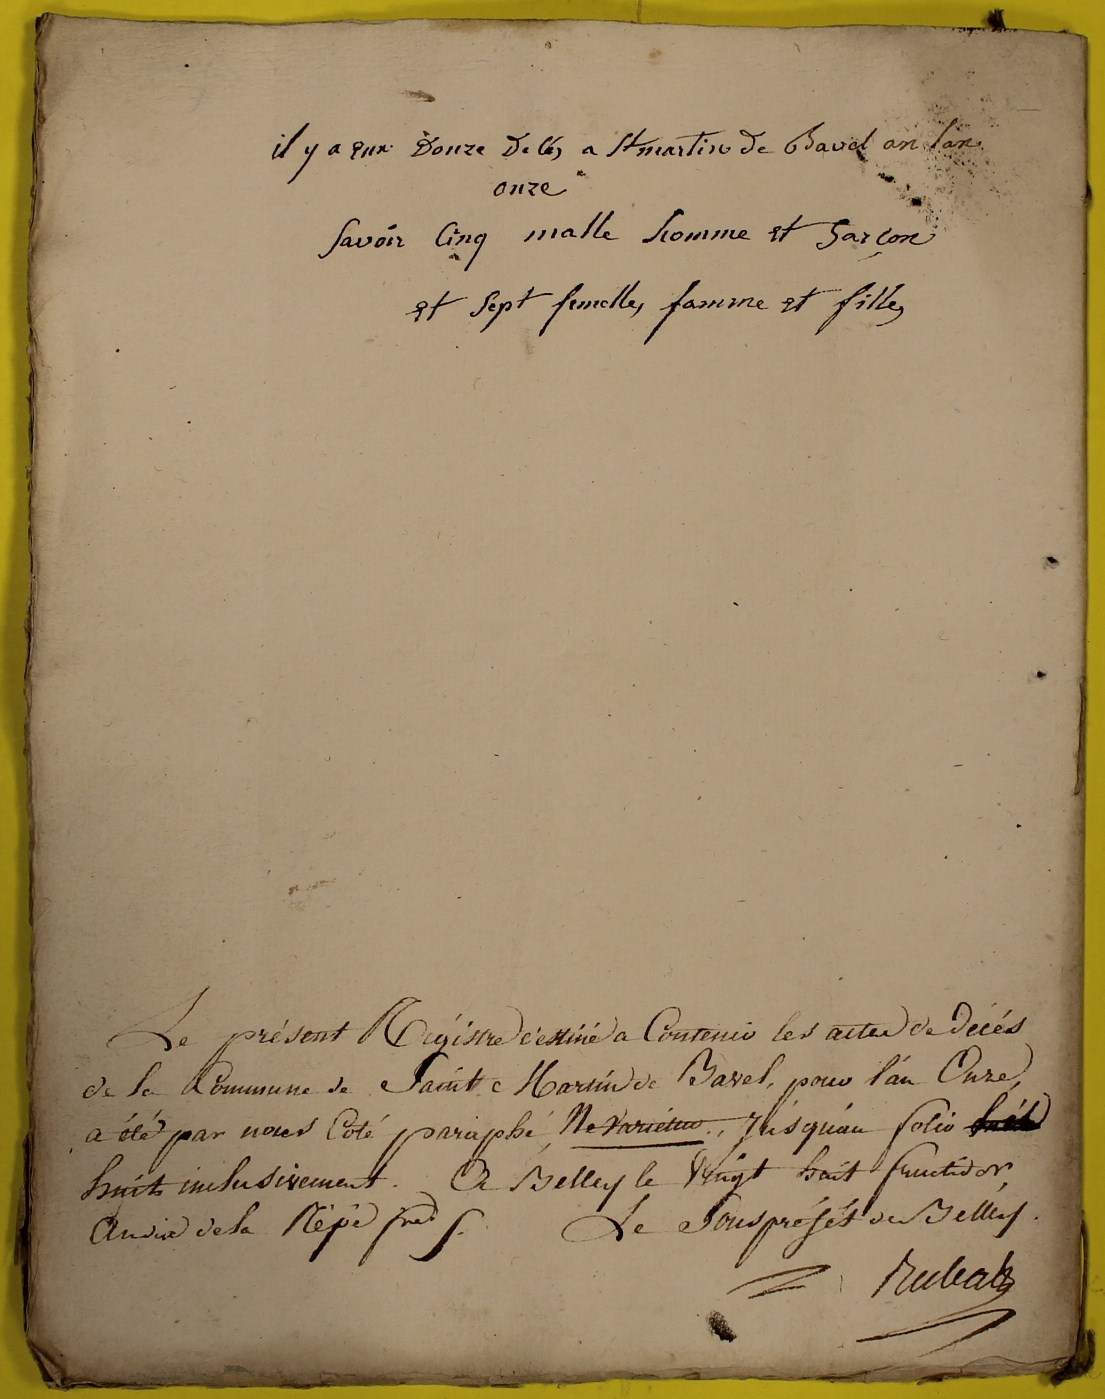 il y a eux douze decés a St martin de Bavel an lan
onze
Savoir Cinq malle homme et garçon
et Sept femelles famme et filles
Le présent Régistre destiné a Contenir les actes de Décès
de la Commune de Saint Martin de Bavel, pour l'an Onze,
a été par nous Coté paraphé, Ne Varietur, Jusquau folio
huit inclusivement. A Belley le Vingt huit fructidor,
an dix de la Répe frse
Le Souspréfét de Belley.
Rubat